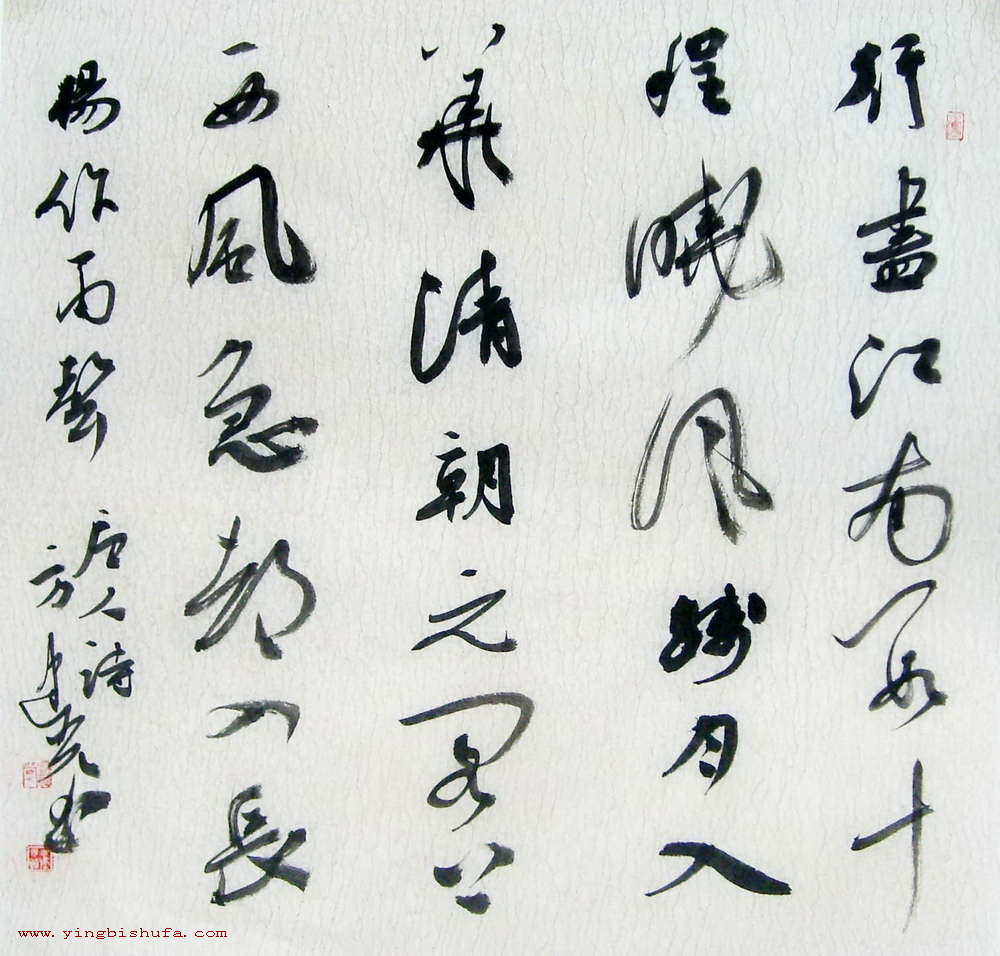 行盡江南數十
程曉風殘月入
華清朝元閣上
西風急都入長
楊作雨聲
唐人詩
方建書
www.yingbishufa.com